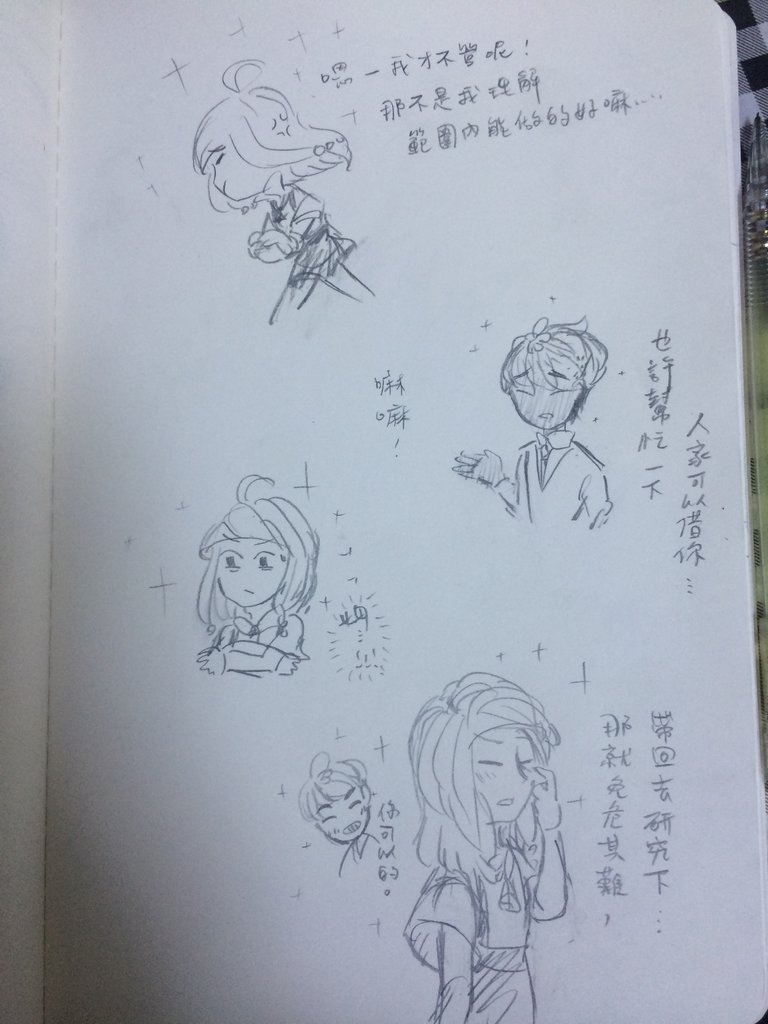 嗯－我才不管呢！
那不是我理解
範圍內能做的好嘛....
人家可以借你...
也許幫忙一下
嘛嘛！
帶回去研究下...
那就免危其難，
你可以的。